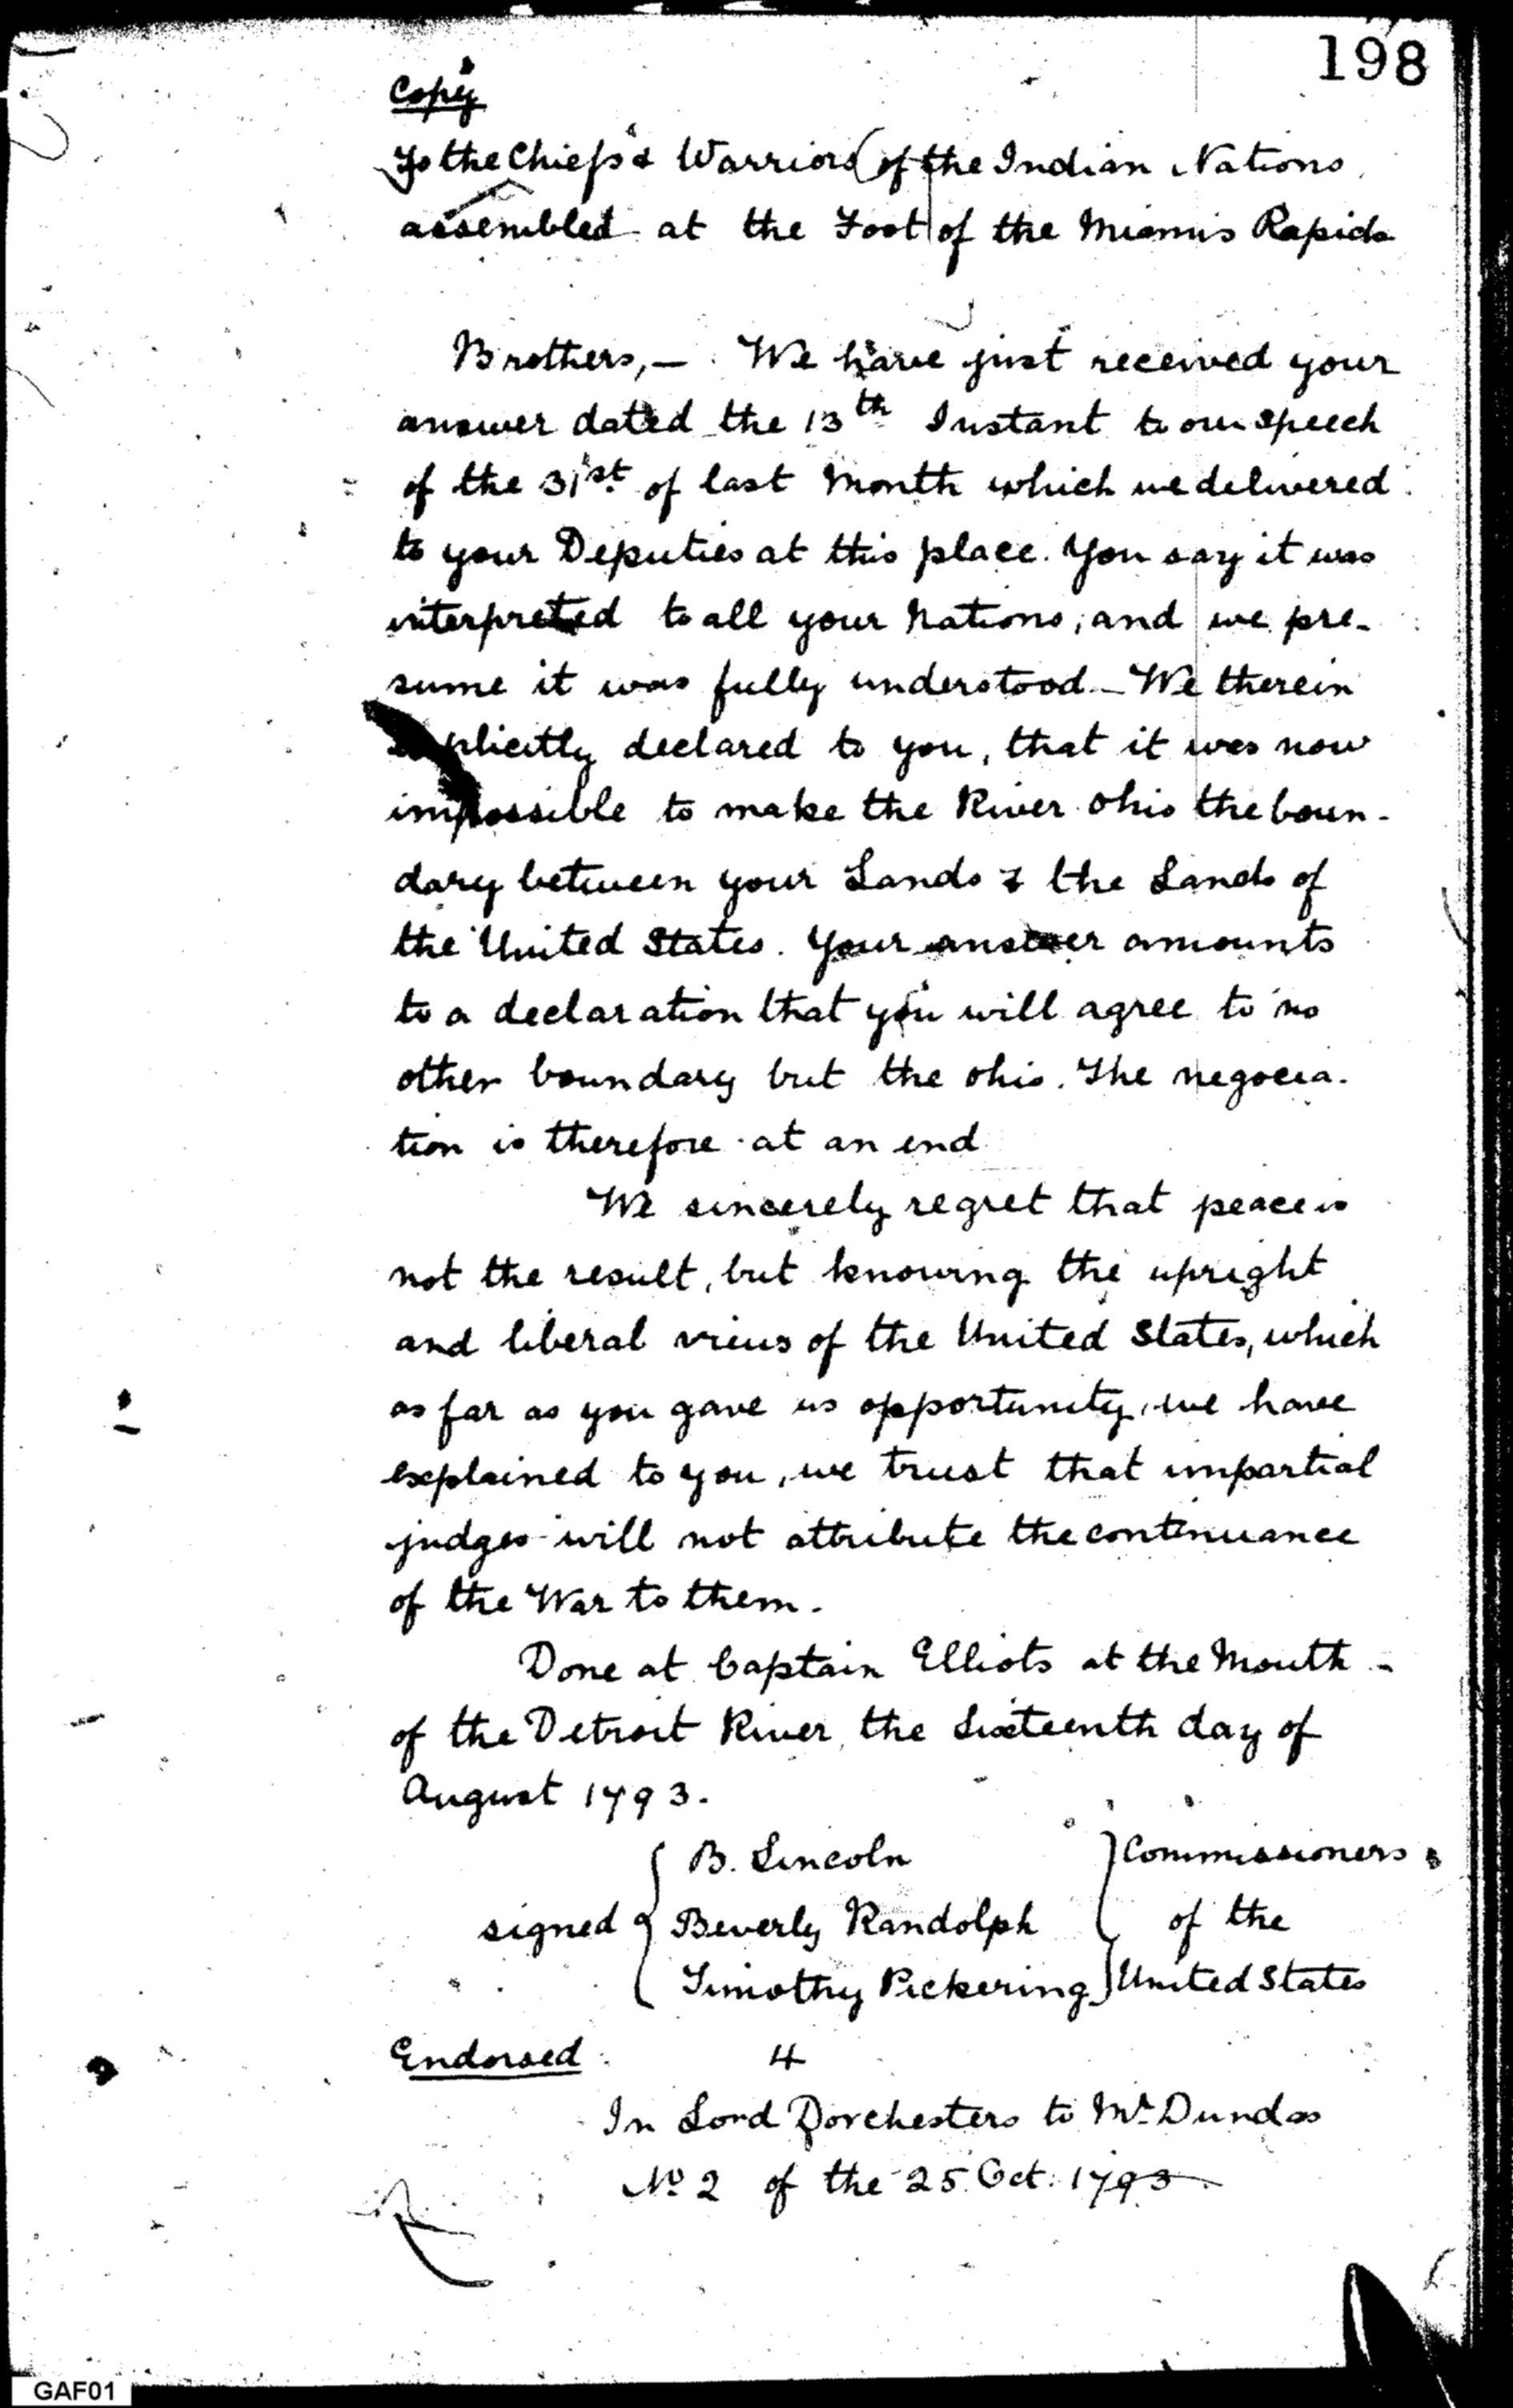 198
Copy
To the Chiefs & Warriors of the Indian Nations
assembled at the Foot of the Miamis Rapids
Brothers,— We have just received your
answer dated the 13th Instant to our speech
of the 31st of last Month which we delivered
to your Deputies at this place. You say it was
interpreted to all your Nations, and we pre-
sume it was fully understood – We therein
explicitly declared to you, that it was now
impossible to make the River Ohio the boun-
dary between your Lands & the Lands of
the United States. Your answer amounts
to a declaration that you will agree to no
other boundary but the Ohio. The negocia-
tion is therefore at an end
We sincerely regret that peace is
not the result, but knowing the upright
and liberal views of the United States, which
as far as you gave us opportunity, we have
explained to you, we trust that impartial
judges will not attribute the continuance
of the War to them.
Done at Captain Elliots at the Mouth
of the Detroit River, the Sixteenth day of
August 1793.
B. Lincoln } Commissioners
signed { Beverly Randolph of the
Timothy Pickering United States
Endorsed 4
In Lord Dorchesters to Mr Dundas
No 2 of the 25 Oct. 1793
GAF01